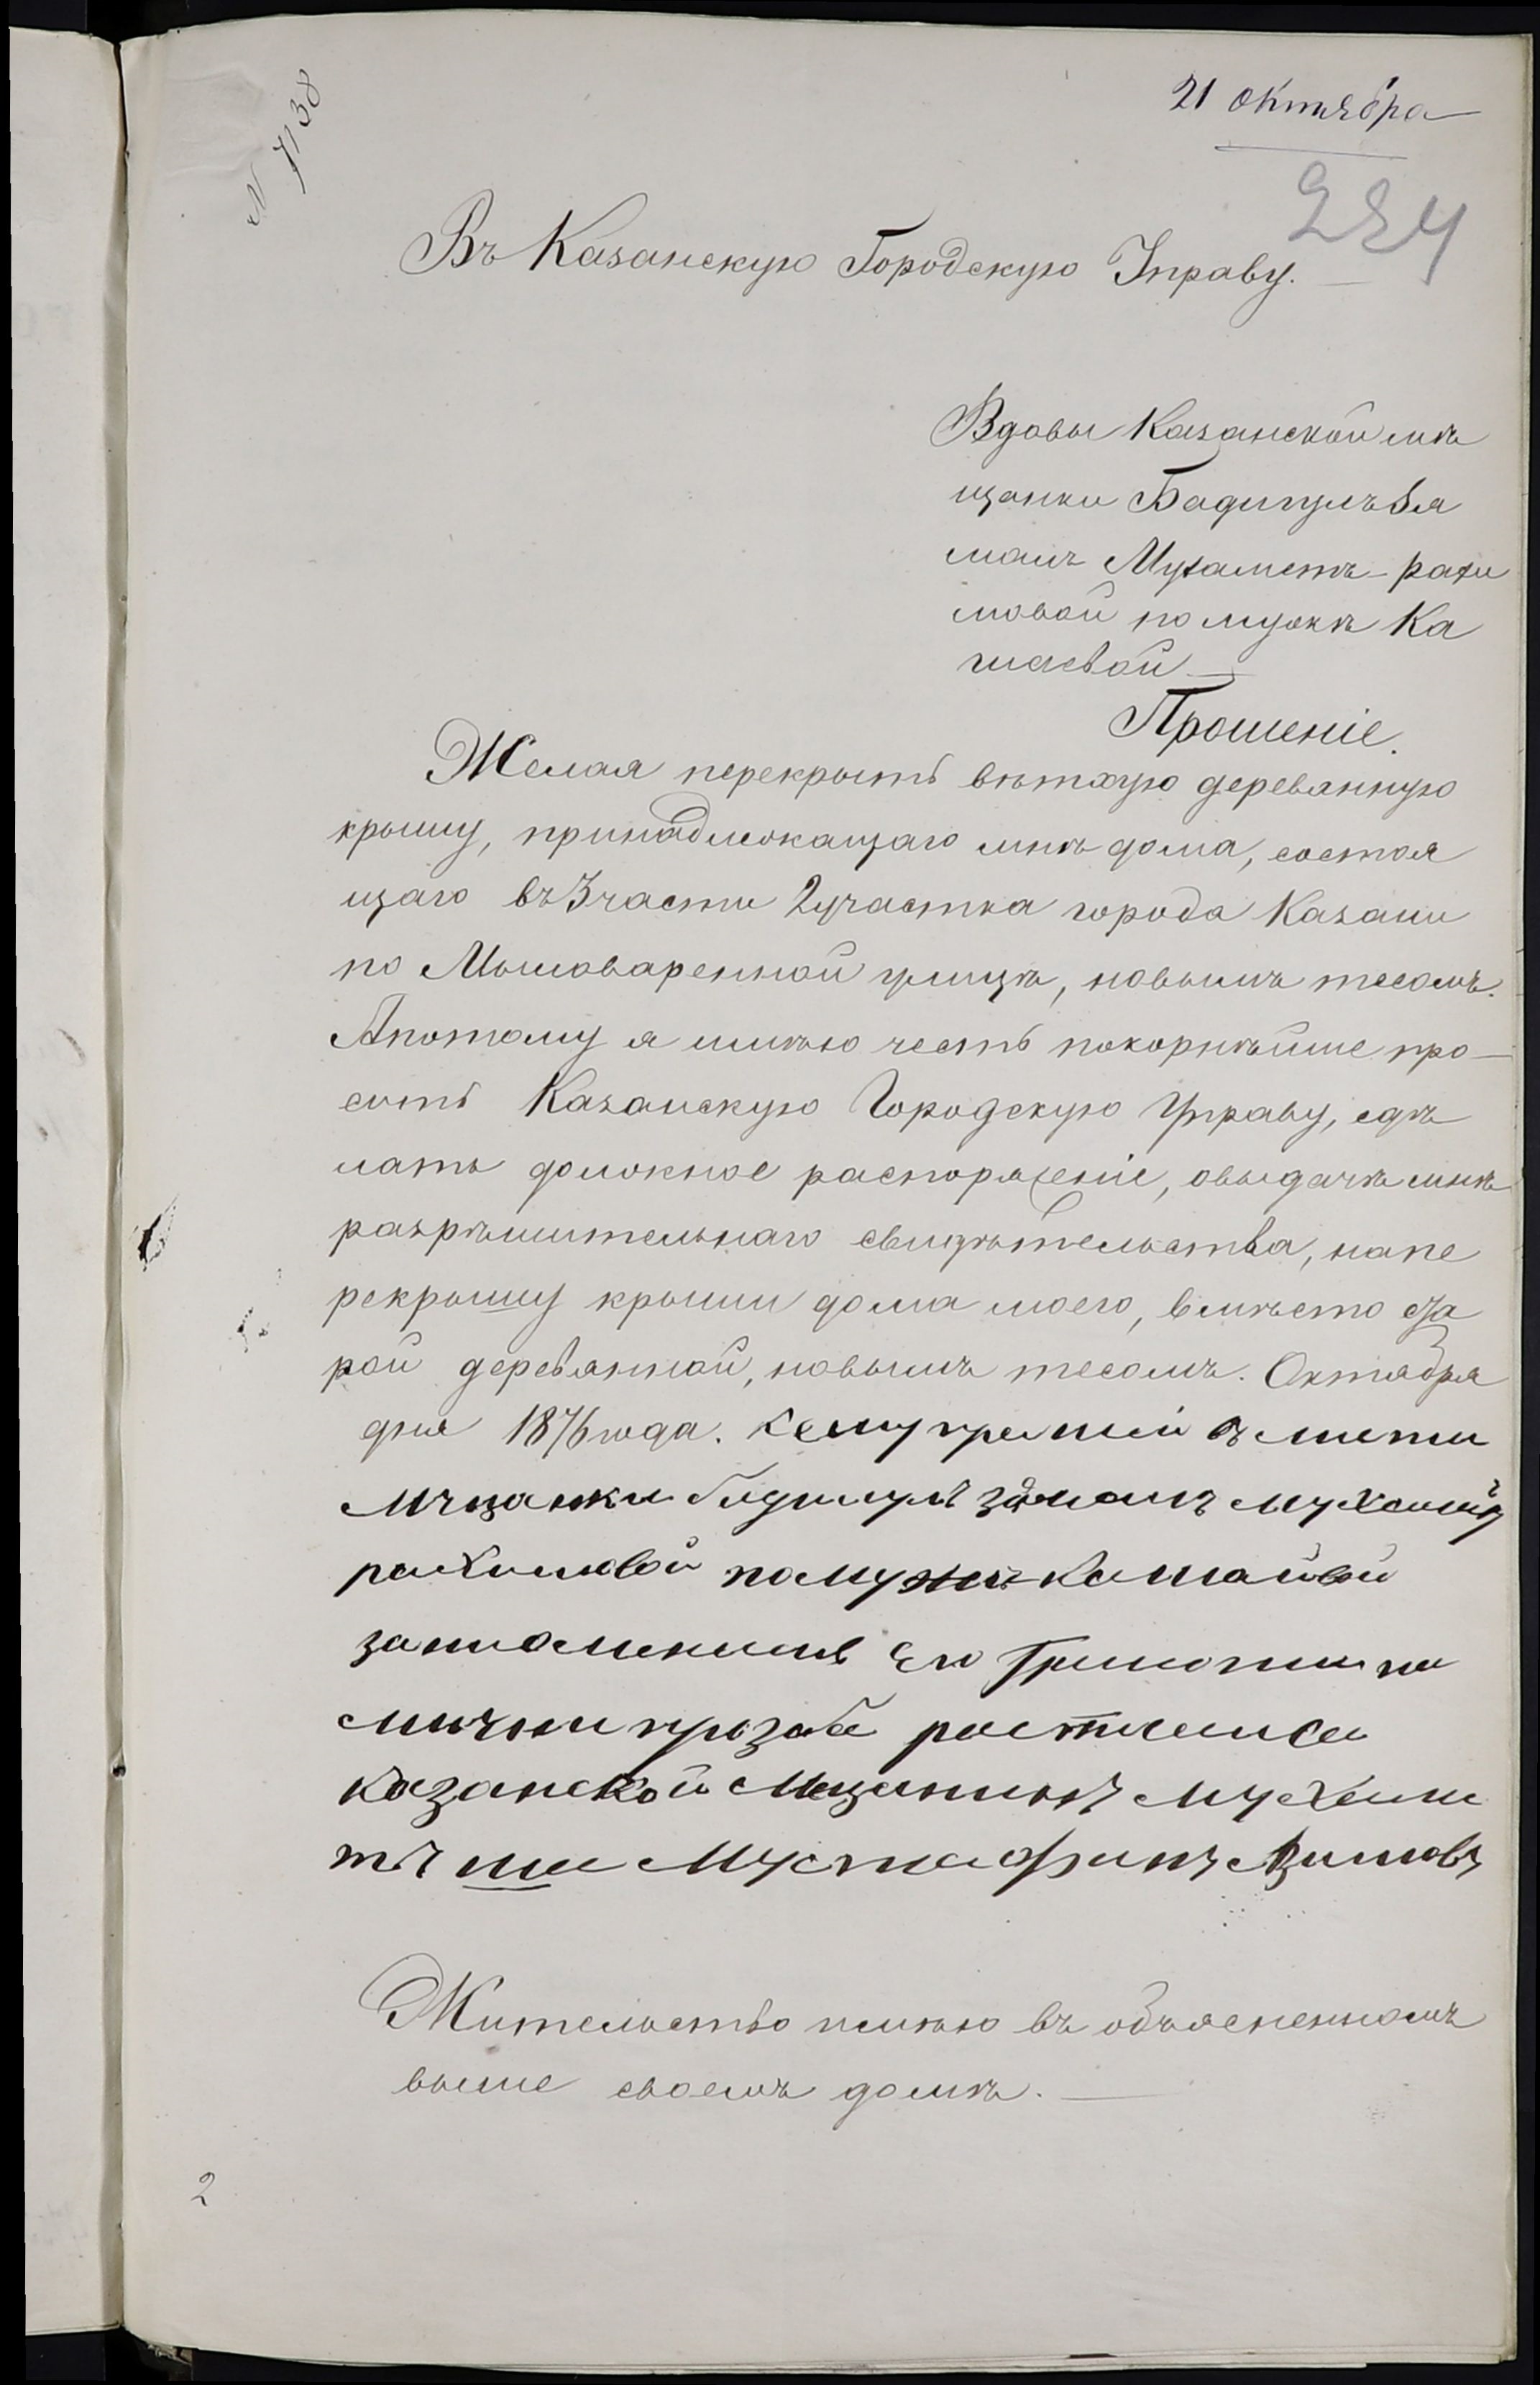 21 октября
N 7138
224
Въ Казанскую Городскую Управу.
Вдовы Казанской мѣ
щанки Бадигулъ Зя
маль Мухаметъ-рахи
мовой по мужѣ Ка
шаевой
Прошеніе.
Желая перекрыть вѣтхую деревянную
крышу, принадлежащаго мнѣ дома, состоя
щаго въ 3 части 2 участка города Казани
по Мыловаренной улицѣ, новымъ тесомъ.
А потому я имѣю честь покорнѣйше про-
сить Казанскую Городскую Управу, сдѣ
лать должное распоряженіе, о выдачѣ мнѣ
разрѣшительнаго свидѣтельства, на пе
рекрышу крыши дома моего, вмѣсто ста
рой деревянной, новымъ тесомъ. Октября
дня 1876 года. К сему прашеній
мѣщанки замалъ мухамитъ
рахимовой по мужѣ кашайвой
Его Грамоти па
личней прозбе росписался
казанской Мещининъ Мухами
тъ ша Мустафинъ Азимовъ
Жительство имѣю въ объясненномъ
выше своемъ домѣ.
2